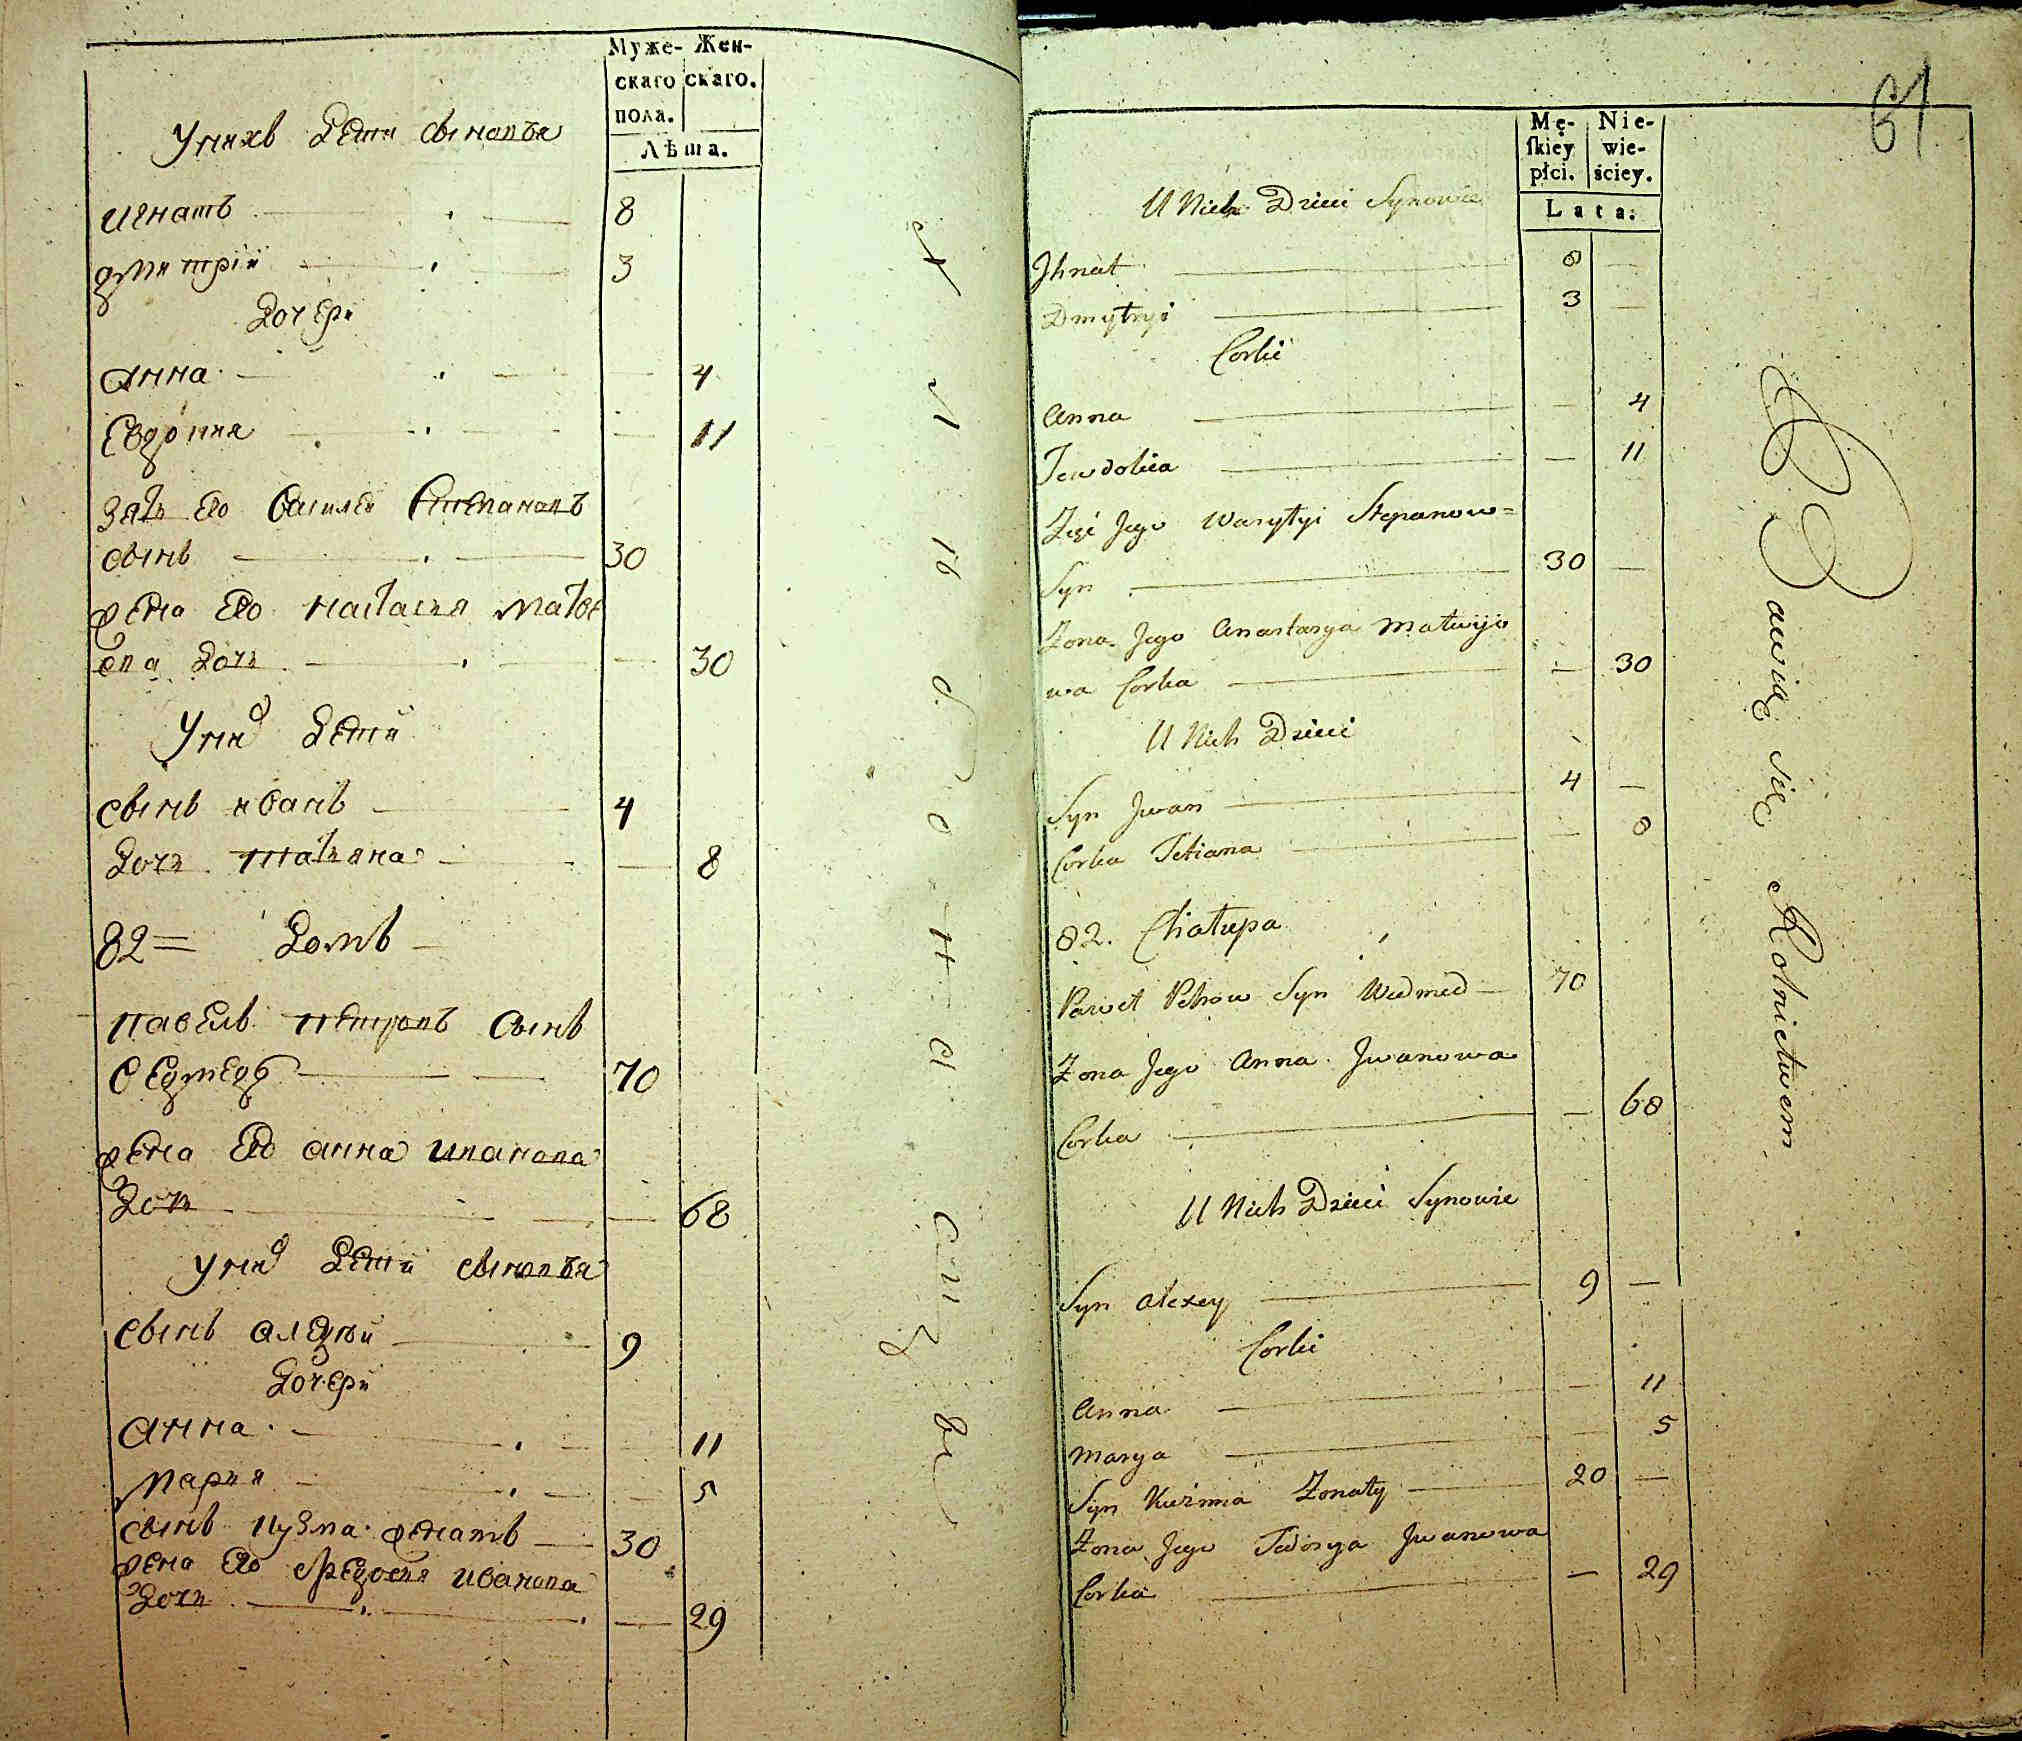 Муже- Жен-
скаго скаго.
пола.
Лѣта.
Унихъ Дети сыновъя
Игнатъ 8
дмитрій 3
Дочери
Анна 4
Евдокия 11
Зять Его Василей Степановъ
сынъ 30
жена Его настасия матве
ева Дочь 30
Унихъ Дети
сынъ иванъ 4
Дочь татьяна 8
82 = Домъ
павелъ петровъ сынъ
ведмедь 70
жена Его анна иванова
Дочь 68
Унихъ Дети сыновъя
сынъ алексѣй 9
Дочери
Анна 11
мария 5
сынъ кузма женатъ 30
жена Его федосия иванова
Дочь 29
61
Mę- Nie-
ſkiey wie-
płci. ściey.
Lata:
U Nich Dzieci Synowie
Jhnat 8
Dmytryi 3
Corki
Anna 4
Jewdokia 11
Zięć Jego Wasylyi Stepanow=
Syn 30
Zona Jego Anastasya Matwijo
wa Corka 30
U Nich Dzieci
Syn Jwan 4
Corka Tetiana 8
82. Chałupa
Paweł Petrow Syn Wedmed 70
Zona Jego Anna Jwanowa
Corka 68
U Nich Dzieci Synowie
Syn Alexey 9
Corki
Anna 11
Marya 5
Syn Kuźma Zonaty 20
Zona Jego Fedosya Jwanowa
Corka 29
Bawią się Rolnictwem